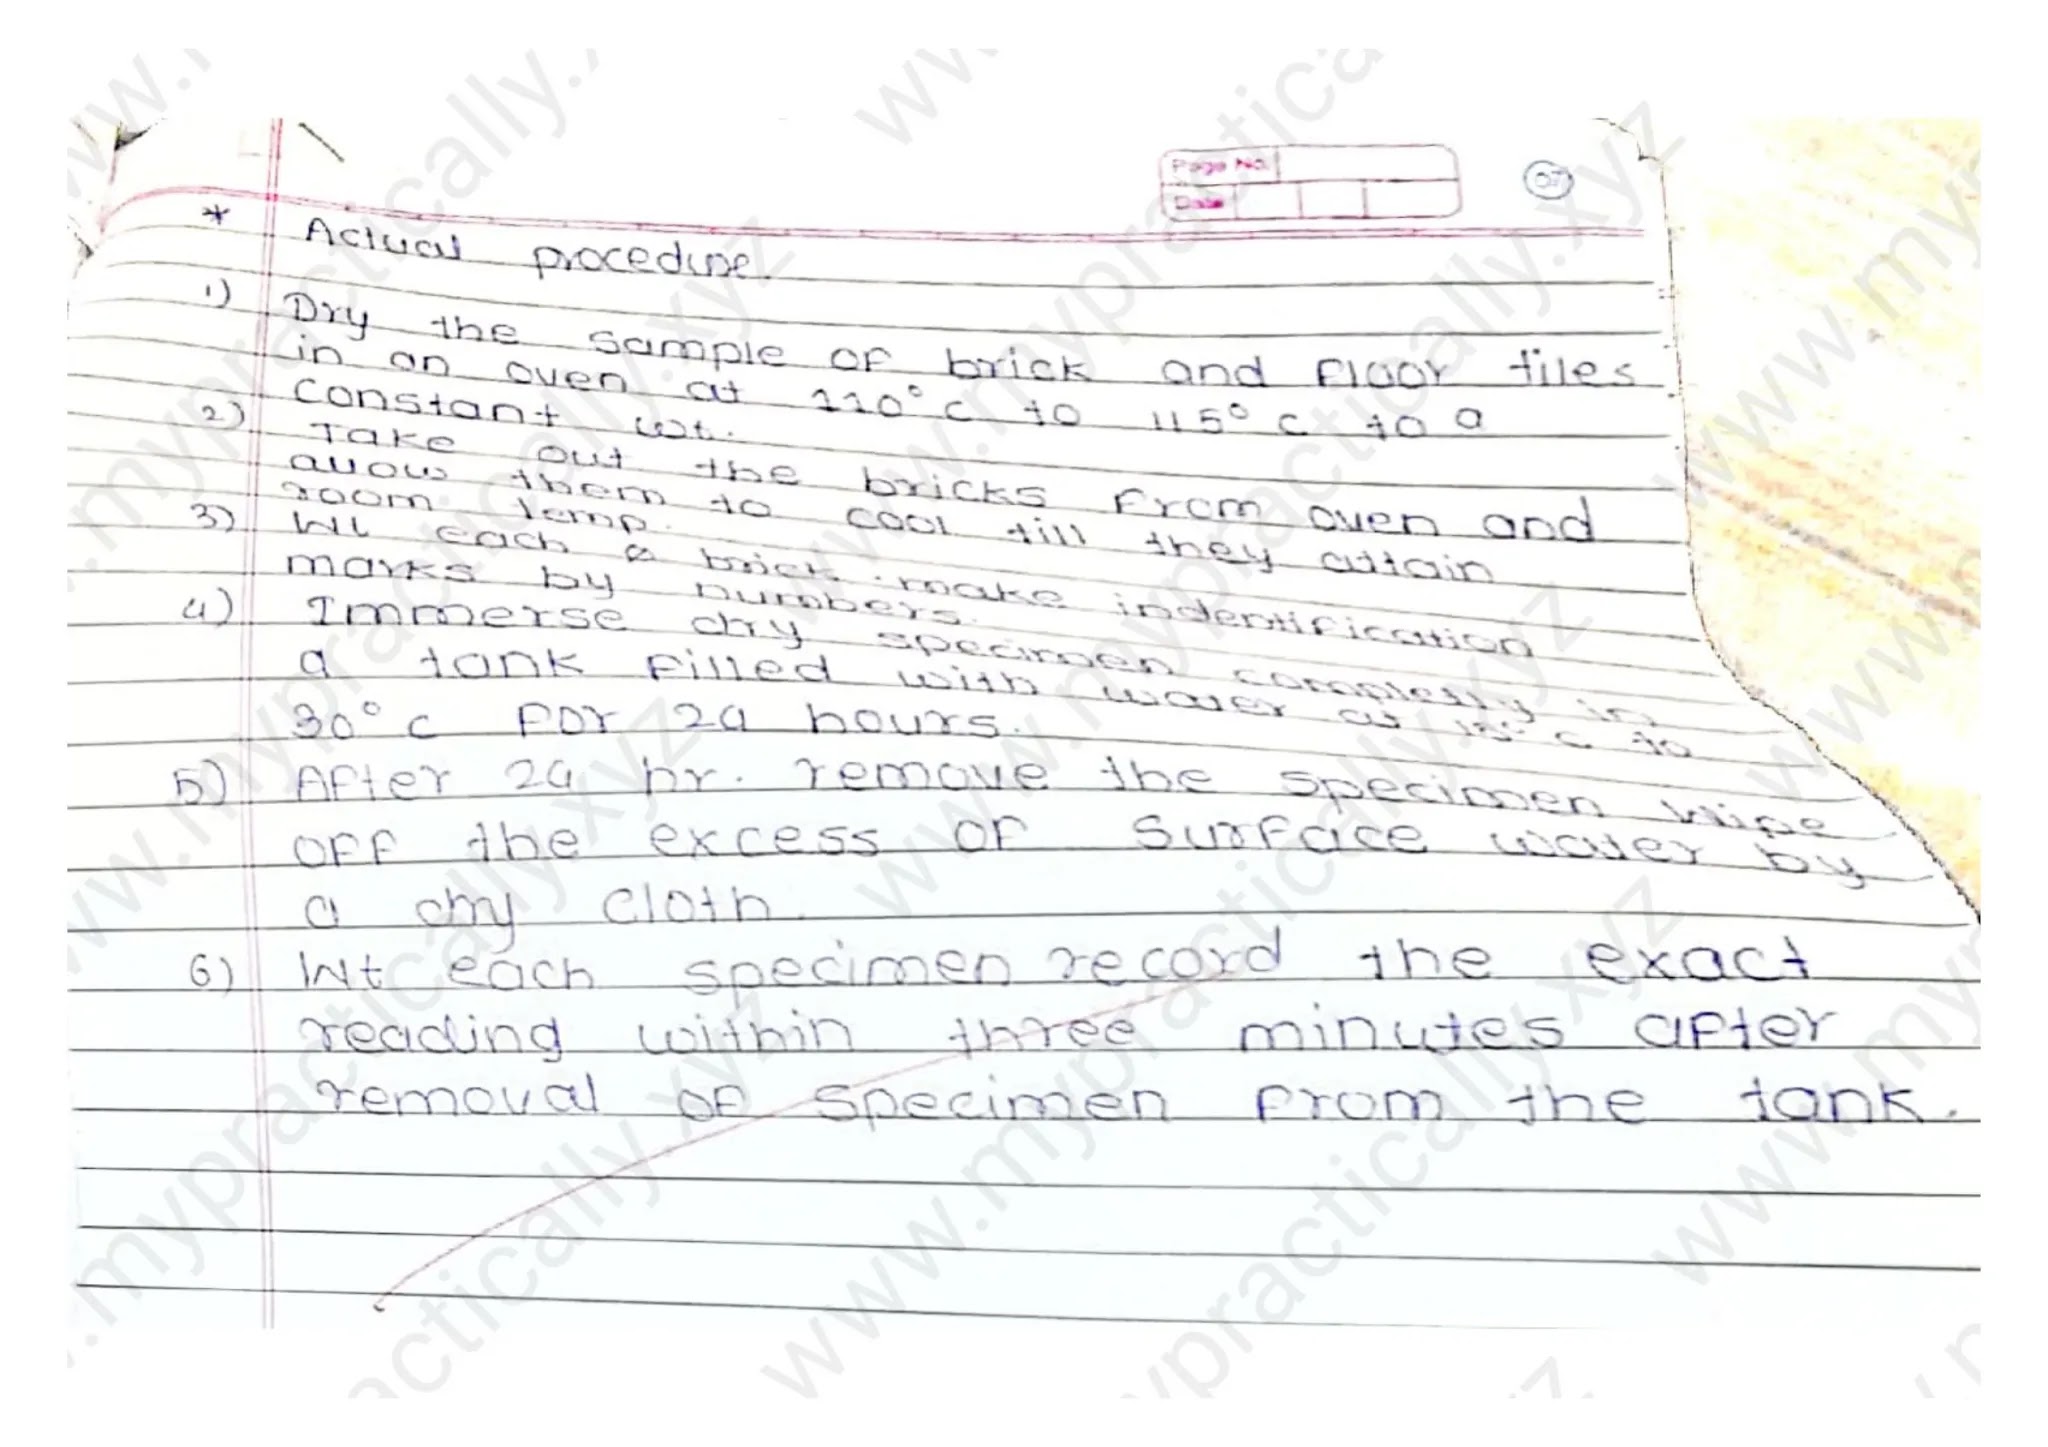 Page No.
Date
07
* Actual procedure.
1) Dry the sample of brick and floor tiles
in an oven at 110° c to 115° c to a
constant wt.
2) Take out the bricks from oven and
allow them to cool till they attain
room temp.
3) Wt each a brick. make indentification
marks by numbers.
4) Immerse dry specimen completly in
a tank filled with water at 15° c to
30° c for 24 hours.
5) After 24 hr. remove the specimen wipe
off the excess of surface water by
a dry cloth.
6) Wt each specimen record the exact
reading within three minutes after
removal of specimen from the tank.
www.mypractically.xyz